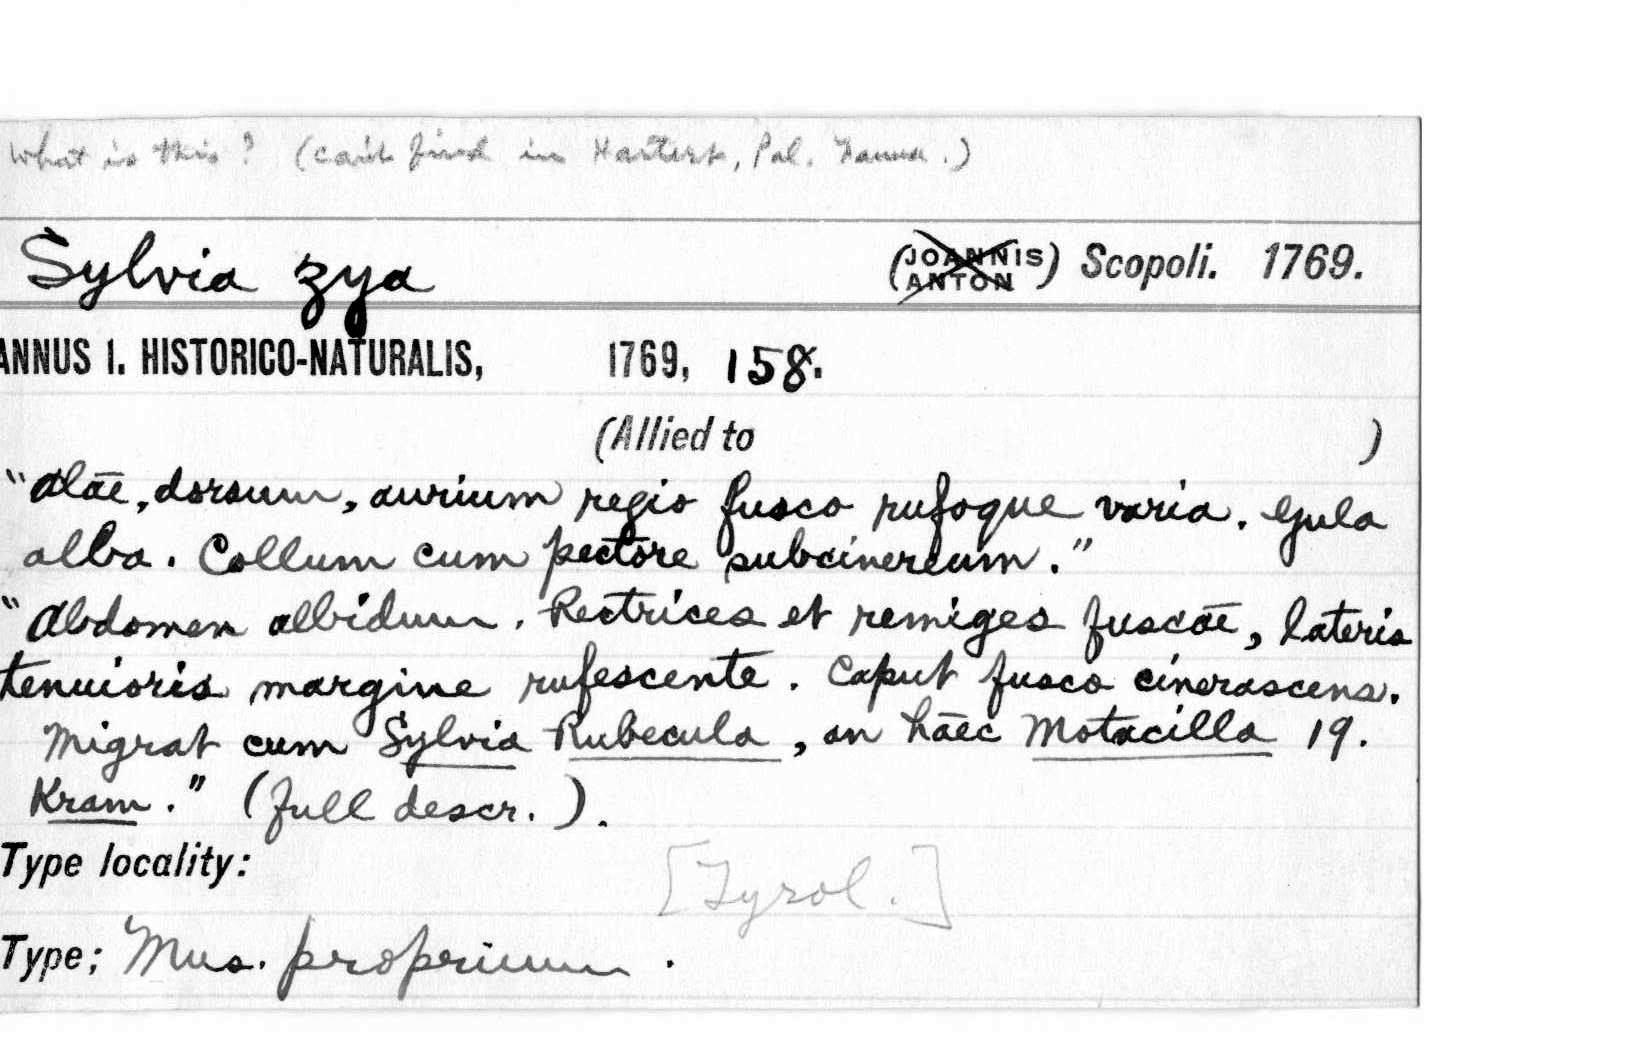 What is this? (can't find in Hartert, Pal. Fauna.)
Sylvia zya (JOANNIS ANTON) Scopoli. 1769.
ANNUS I. HISTORICO-NATURALIS, 1769, 158.
(Allied to )
"Alāe, dorsum, aurium regio fusco rufoque varia. Gula
alba. Collum cum pectore subcinereum."
"Abdomen albidum. Rectrices et remiges fuscāe, lateris
tenuioris margine rufescente. Caput fusco cinerascens.
Migrat cum Sylvia Rubecula, an hāec Motacilla 19.
Kram." (full descr.).
Type locality: [Tyrol.]
Type; Mus. proprium.